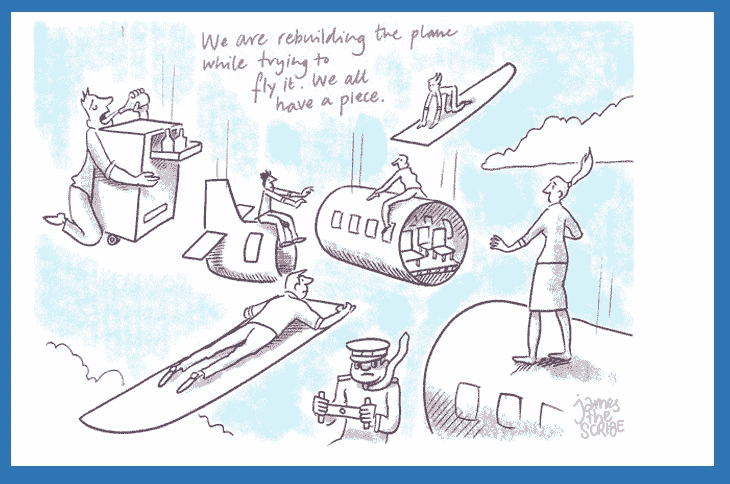 We are rebuilding the plane
while trying to
fly it. We all
have a piece.
james
the
SCRIBE